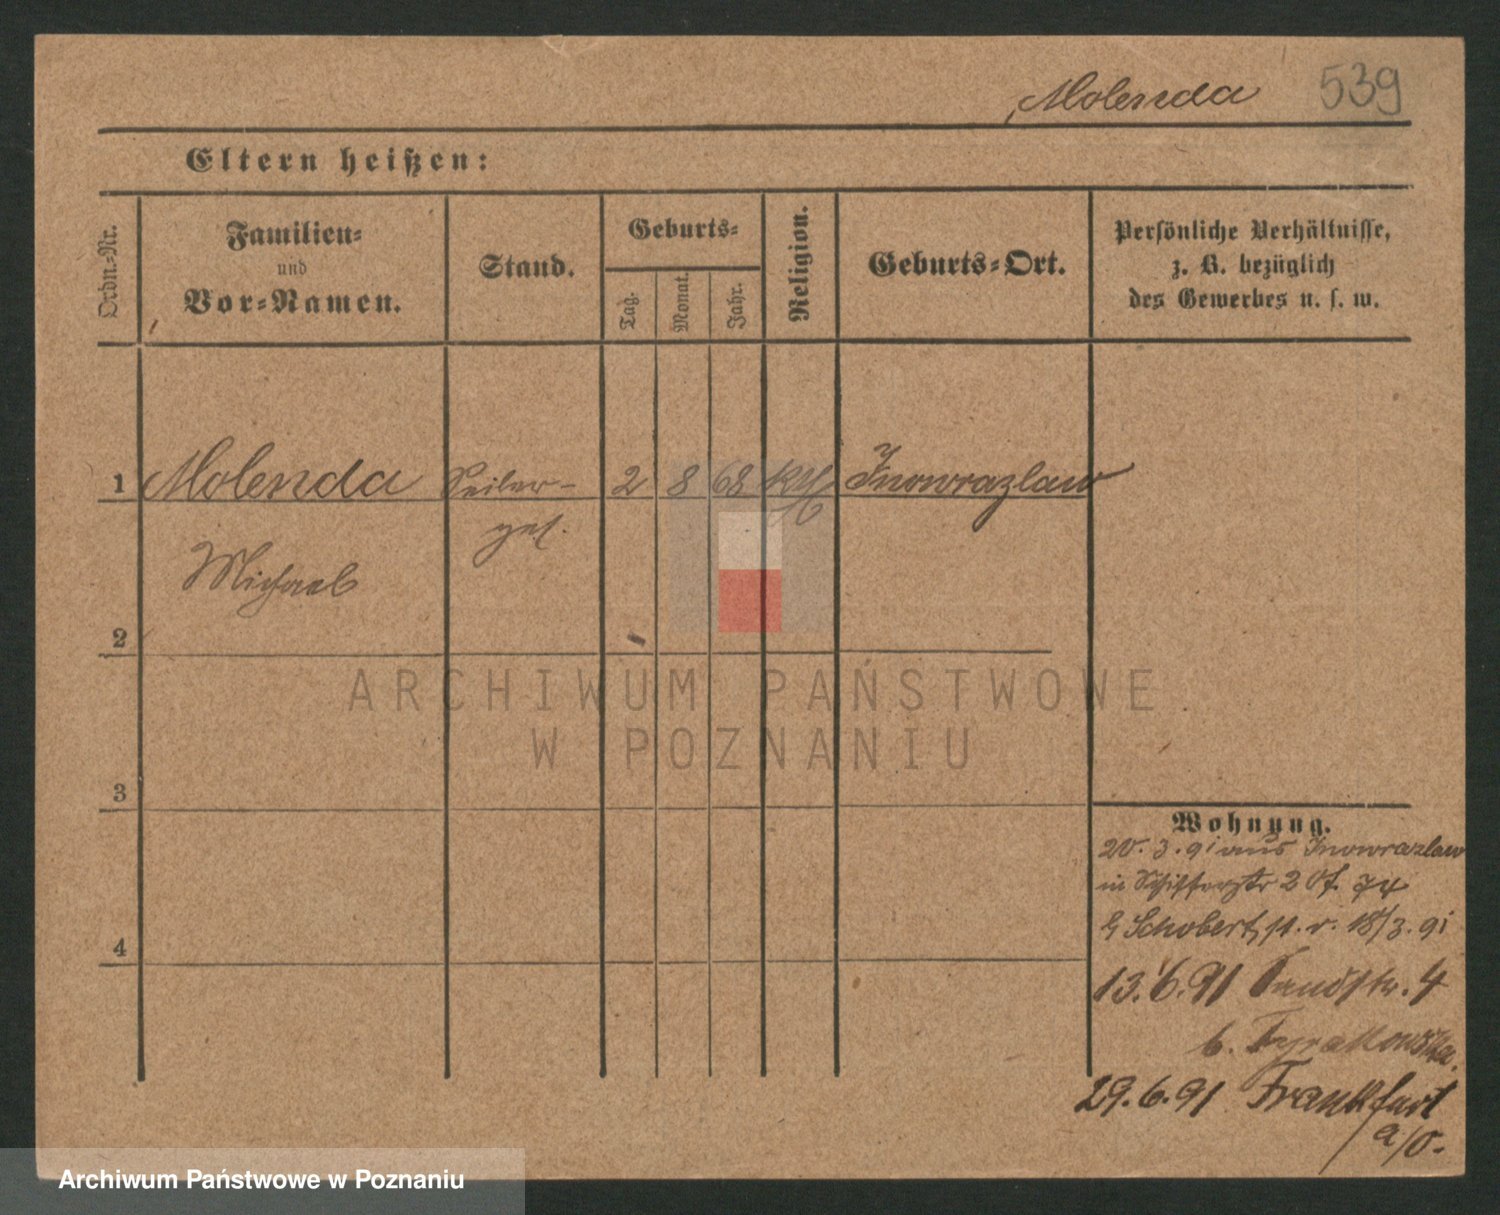 Molenda 539
Eltern heißen:
Ordn.-Nr.
Familien-
und
Vor-Namen.
Stand.
Geburts-
Tag.
Monat.
Jahr.
Religion.
Geburts-Ort.
Persönliche Verhältnisse,
z. B. bezüglich
des Gewerbes u. s. w.
1 Molenda Seiler- 2 8 68 kth Inowrazlaw
ges.
Michael
2
ARCHIWUM PAŃSTWOWE
W POZNANIU
3
4
Wohnung.
20. 3. 91 aus Inowrazlaw
in Schifferstr 20
Schobert, 18/3. 91
13. 6. 91 Sandstr. 4
b.
29. 6. 91 Frankfurt
a/O.
Archiwum Państwowe w Poznaniu